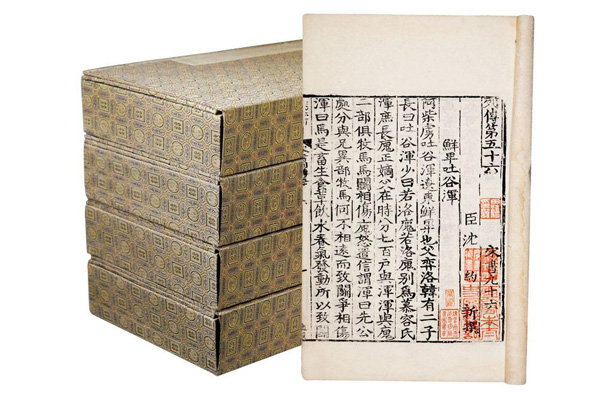 列傳第五十六 宋書九十六
臣沈 約 新撰
鮮卑吐谷渾
阿柴虜吐谷渾遼東鮮卑也父弈洛韓有二子
長曰吐谷渾少曰若洛廆若洛廆別爲慕容氏
渾庶長廆正嫡父在時分七百戶與渾渾與廆
二部俱牧馬馬鬬相傷廆怒遣信謂渾曰先公
處分與兄異部牧馬何不相遠而致鬬爭相傷
渾曰馬是畜生食草飲水春氣發動所以致鬬